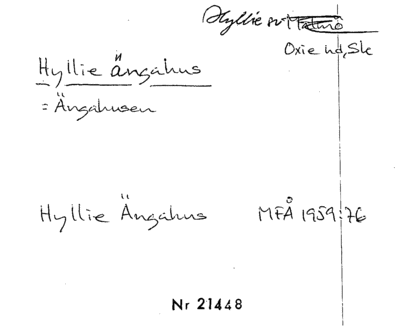 Hyllie sn
Oxie hd, Sk
Hyllie ängahus
= Ängahusen
Hyllie Ängahus MFÅ 1959:76
Nr 21448